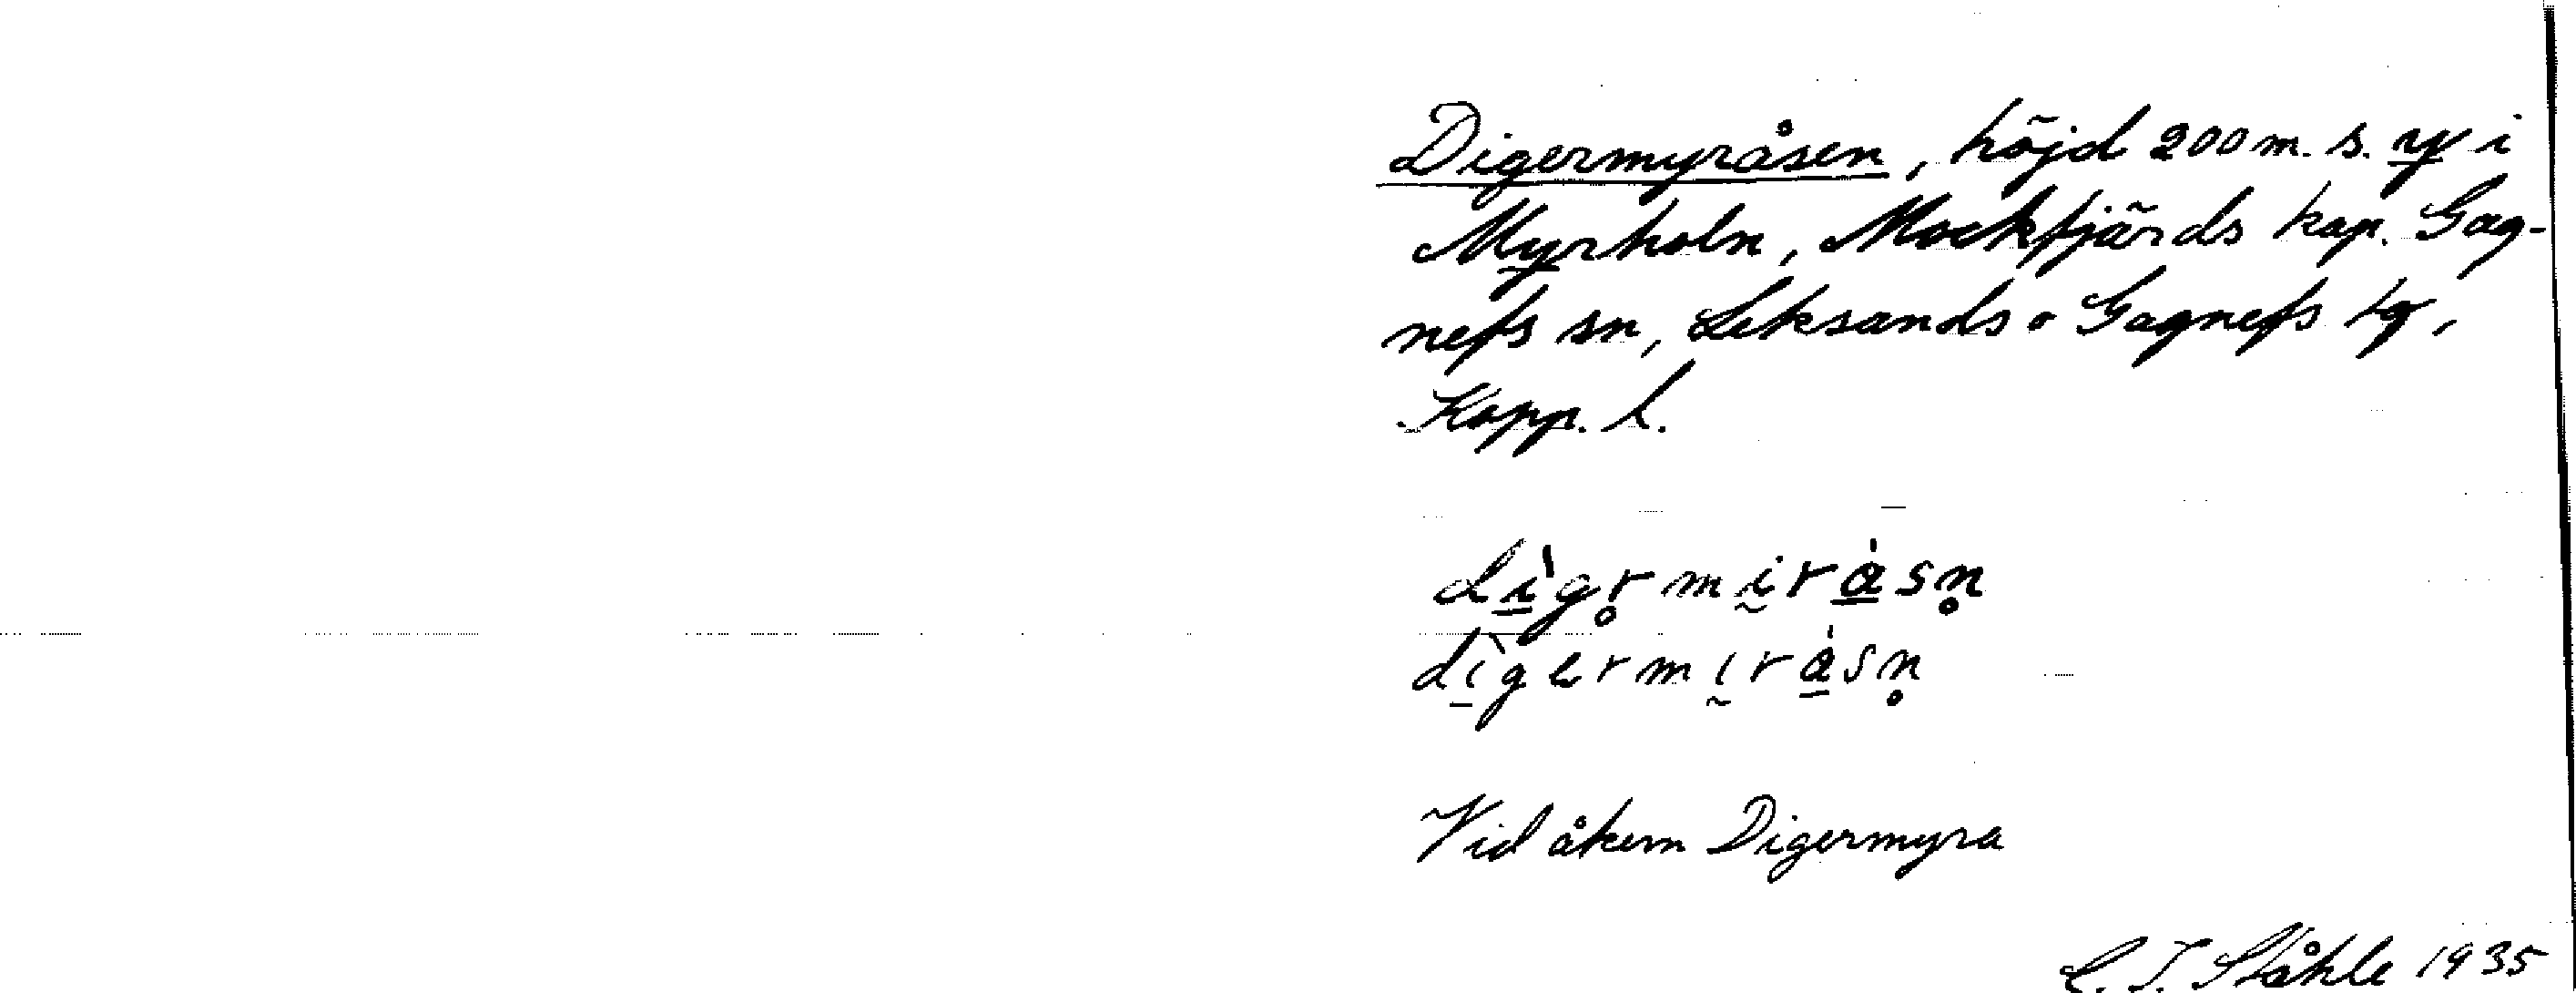 Digermyråsen, höjd 200 m. s. y i
Myrholn, Mockfjärds kap. Gag-
nefs sn, Leksands o Gagnefs tg,
Kopp. l.
dìgr̥mḭràsn̥
dìgermı̰ràsn̥
Vid åkern Digermyra
C. I. Ståhle 1935